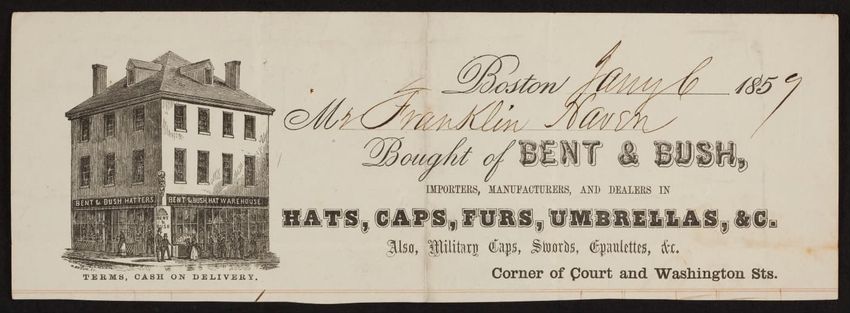 Boston Jany 6 1859
Mr Franklin Haven
Bought of BENT & BUSH,
IMPORTERS, MANUFACTURERS, AND DEALERS IN
HATS, CAPS, FURS, UMBRELLAS, &C.
Also, Military Caps, Swords, Epaulettes, &c.
Corner of Court and Washington Sts.
BENT & BUSH HATTERS.
BENT & BUSH, HAT WAREHOUSE
TERMS, CASH ON DELIVERY.